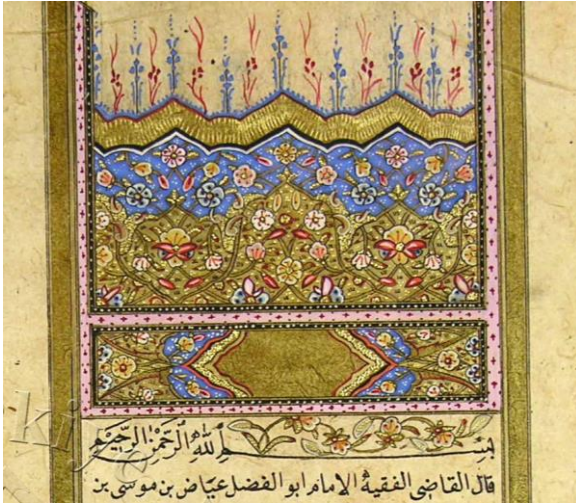 بسم الله الرحمن الرحيم
قال القاضى الفقيه الامام ابو الفضل عياض بن موسى بن